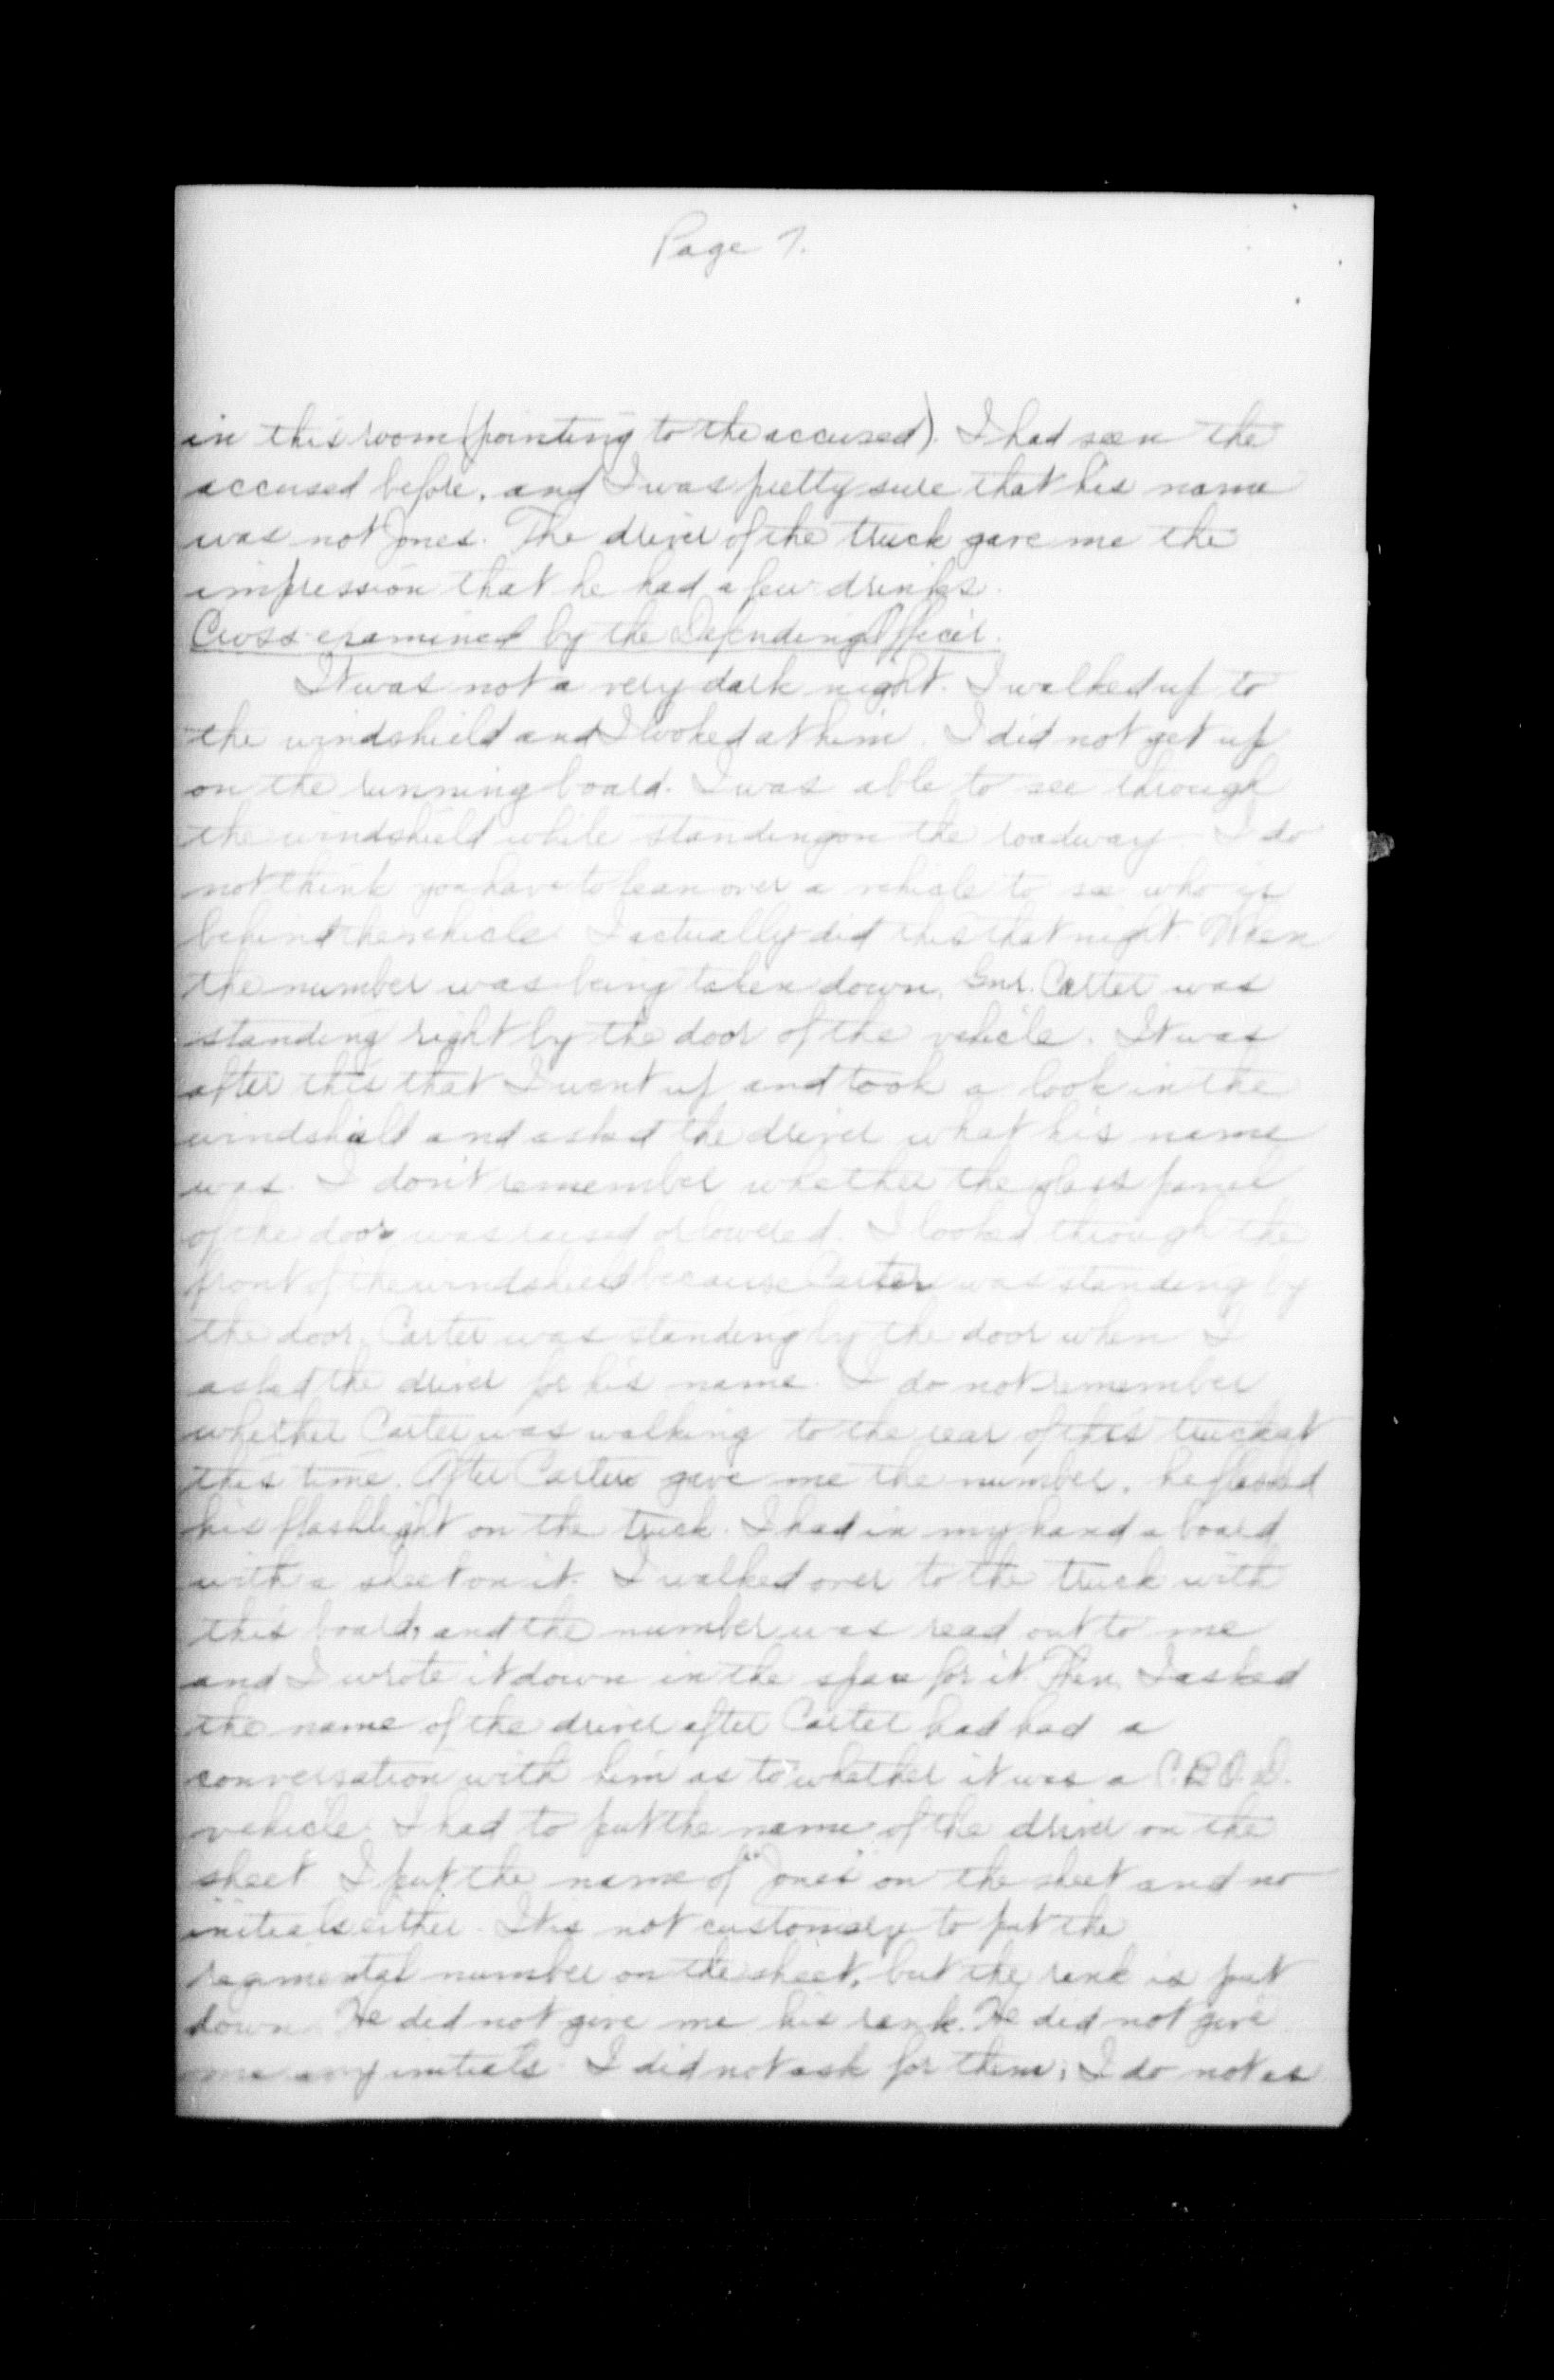 Page 7.
in this room (pointing to the accused). I had seen the
accused before, and I was pretty sure that his name
was not Jones. The driver of the truck gave me the
impression that he had a few drinks.
Cross-examined by the Defending Officer.
It was not a very dark night. I walked up to
the windshield and I looked at him. I did not get up
on the running board. I was able to see through
the windshield while standing on the roadway. I do
not think you have to lean over a vehicle to see who is
behind the vehicle. I actually did this that night. When
the number was being taken down, Gnr. Carter was
standing right by the door of the vehicle. It was
after this that I went up and took a look in the
windshield and asked the driver what his name
was. I don't remember whether the glass panel
of the door was raised or lowered. I looked through the
front of the windshield because Carter was standing by
the door. Carter was standing by the door when I
asked the driver for his name. I do not remember
whether Carter was walking to the rear of this truck at
this time. After Carter gave me the number, he flashed
his flashlight on the truck. I had in my hand a board
with a sheet on it. I walked over to the truck with
this board, and the number was read out to me
and I wrote it down in the space for it. Then I asked
the name of the driver after Carter had had a
conversation with him as to whether it was a C.B.O.D.
vehicle. I had to put the name of the driver on the
sheet. I put the name of "Jones" on the sheet and no
initials either. It is not customary to put the
regimental number on the sheet, but the rank is put
down. He did not give me his rank. He did not give
me any initials. I did not ask for them, I do not as